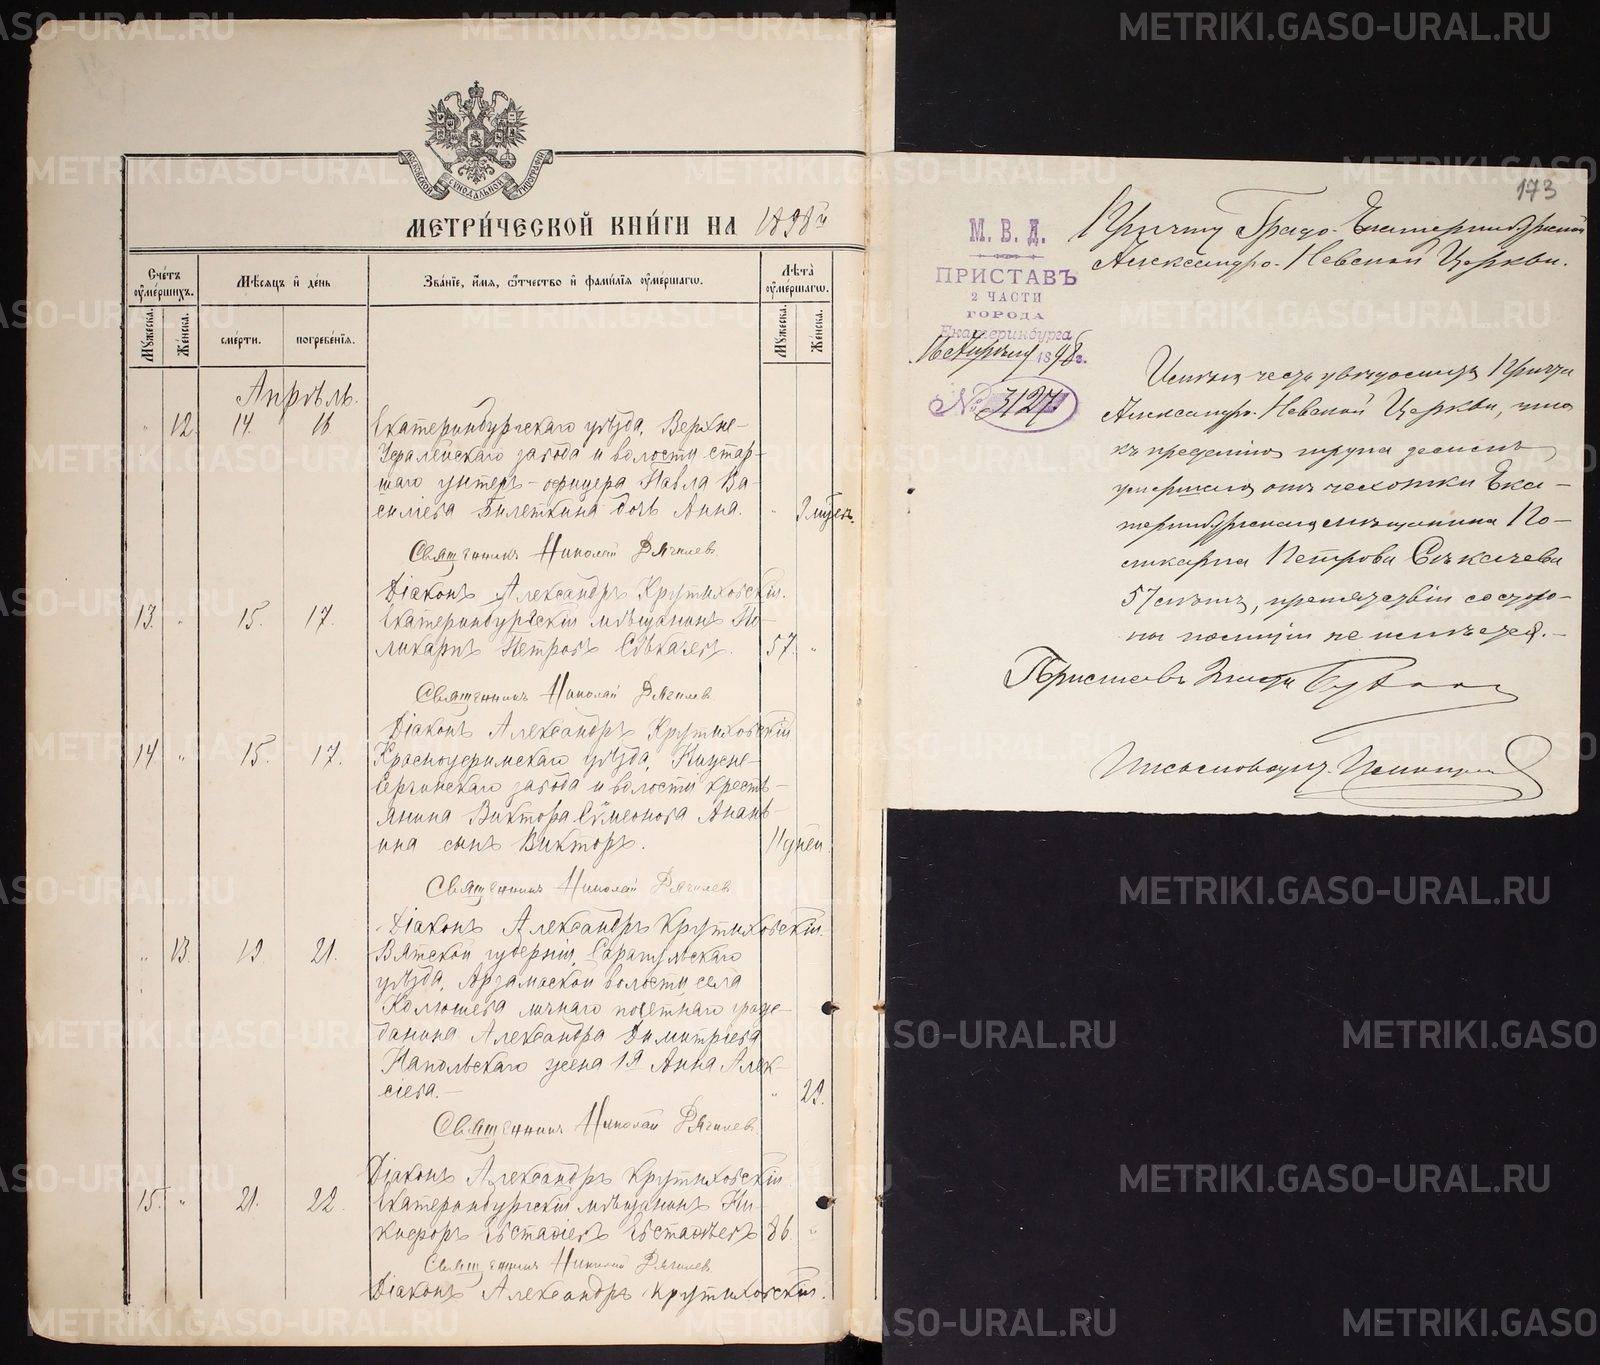 МОСКОВСКОЙ СѴНОДАЛЬНОЙ ТИПОГРАФІИ
МЕТРИ́ЧЕСКОЙ КНИ́ГИ НА 1898й
Сче́тъ ᲂу҆ме́ршихъ.
Мѣ́сяцъ и҆ де́нь
Зва́нїе, и҆́мя, ѻ҆́тчество и҆ фами́лїя ᲂу҆ме́ршагѡ.
Лѣ́та ᲂу҆ме́ршагѡ.
Мꙋ́жеска.
Же́нска.
сме́рти.
погребе́нїѧ.
Мꙋ́жеска.
Же́нска.
Апрѣль.
" 12. 14. 16 Екатеринбургскаго уѣзда, Верхне-
Уфалейскаго завода и волости стар-
шаго унтеръ-офицера Павла Ва-
силіева Билеткина дочь Анна. "
Священникъ Николай Дягилевъ
Діаконъ Александръ Крутиховскій.
13. " 15. 17. Екатеринбургскій мѣщанинъ По-
ликарпъ Петровъ Сѣкачевъ. 57. "
Священникъ Николай Дягилевъ
Діаконъ Александръ Крутиховскій
14. " 15. 17. Красноуфимскаго уѣзда, Нижне-
Сергинскаго завода и волости кресть-
янина Виктора Сѵмеонова Анань-
ина сынъ Викторъ. 11 дней.
Священникъ Николай Дягилевъ
Діаконъ Александръ Крутиховскій.
" 13. 19. 21. Вятской губерніи, Сарапульскаго
уѣзда, Арзамаской волости села
личнаго почетнаго граж-
данина Александра Димитріева
Напольскаго жена 1я Анна Алек-
сіева.- " 29.
Священникъ Николай Дягилевъ
Діаконъ Александръ Крутиховскій
15. " 21. 22. Екатеринбургскій мѣщанинъ Ни-
кифоръ Евстафіевъ Евстафьевъ 86. "
Священникъ Николай Дягилевъ
Діаконъ Александръ Крутиховскій.
173
М. В. Д.
ПРИСТАВЪ
2 ЧАСТИ
ГОРОДА
Екатеринбурга
16 Апрѣля 1898г.
№ 3127
Причту Градо-Екатеринбургской
Александро-Невской Церкви.
Имѣю честь увѣдомить Причтъ
Александро-Невской Церкви, что
къ преданію трупа землѣ
умершаго отъ чахотки Ека-
теринбургскаго мѣщанина По-
ликарпа Петрова Сѣкачева
57 лѣтъ, препятствій со сторо-
ны полиціи не имѣется.-
Приставъ 2 части
Письмоводит.
METRIKI.GASO-URAL.RU